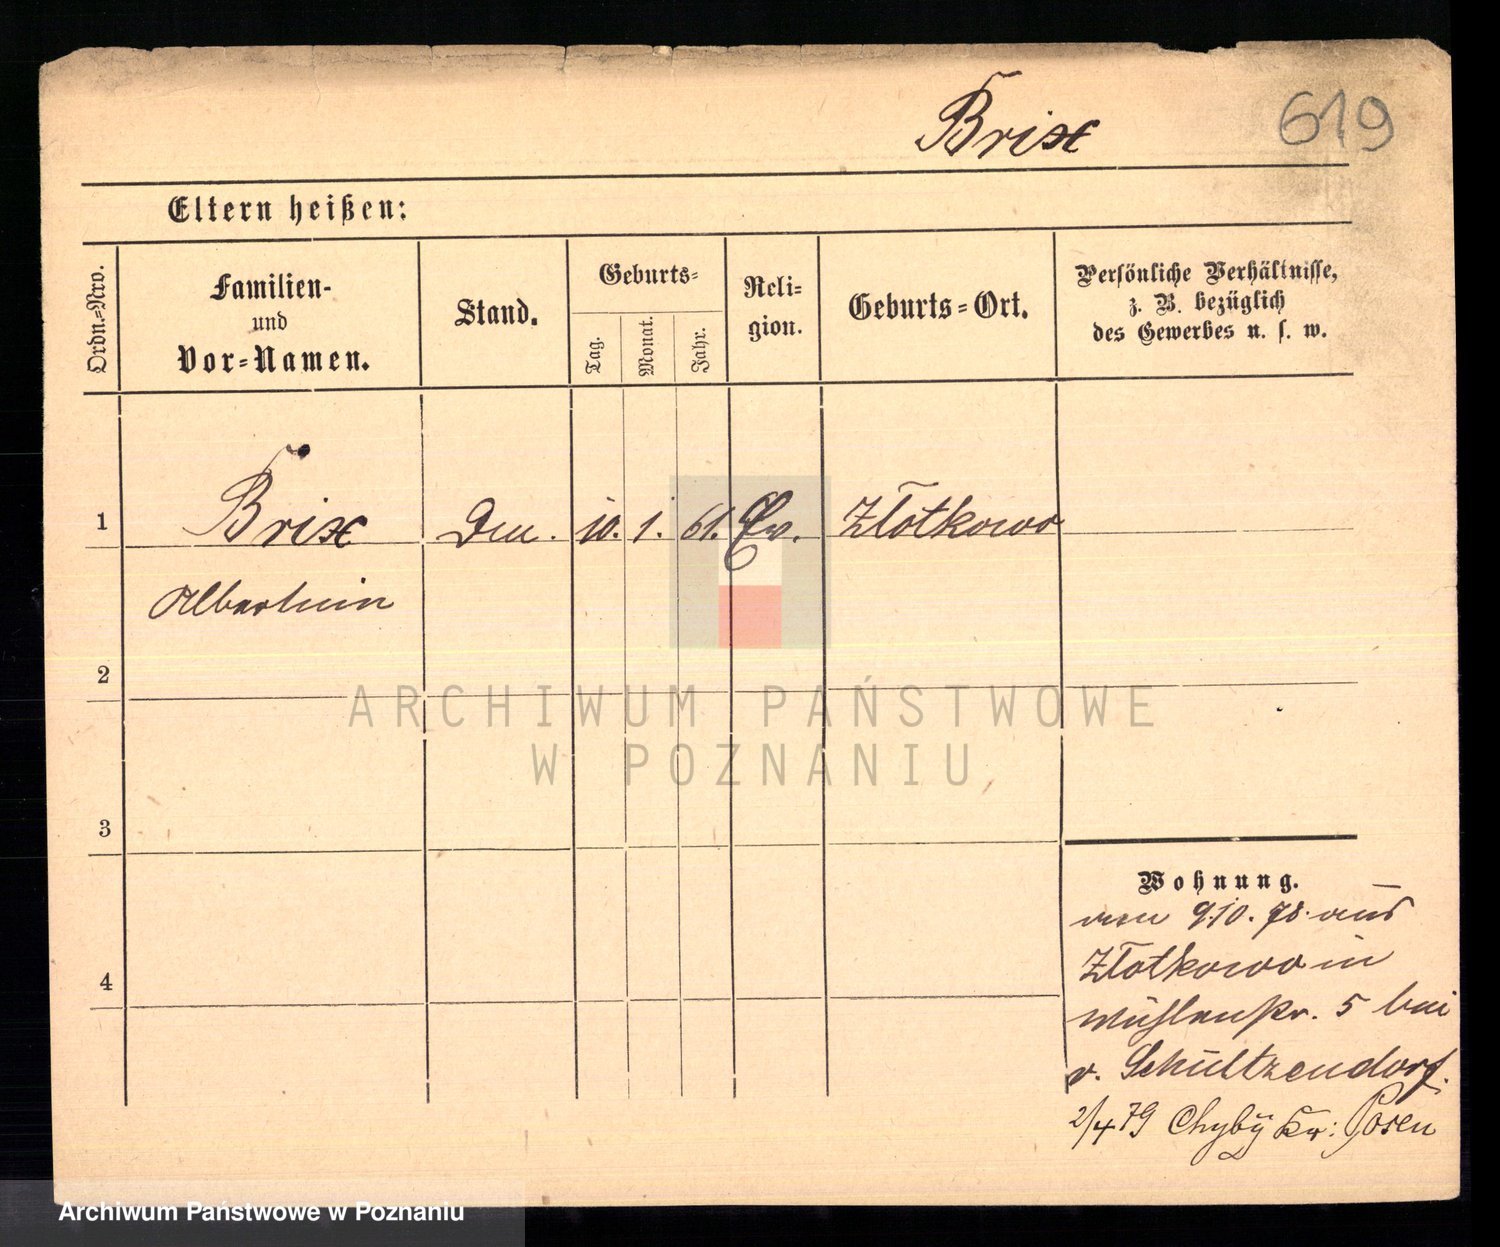 Brix
619
Eltern heißen:
Ordn.-Nro.
Familien-
und
Vor-Namen.
Stand.
Geburts-
Tag.
Monat.
Jahr.
Reli-
gion.
Geburts-Ort.
Persönliche Verhältnisse,
z. B. bezüglich
des Gewerbes u. s. w.
1 Brix 10. 1. 61. Ev. Złotkowo
Albertine
2
3
4
Wohnung.
9.10.78. aus
Złotkowo in
Mühlenstr. 5 bei
v. Schultzendorf.
2/4 79 Chyby Kr: Posen
ARCHIWUM PAŃSTWOWE
W POZNANIU
Archiwum Państwowe w Poznaniu